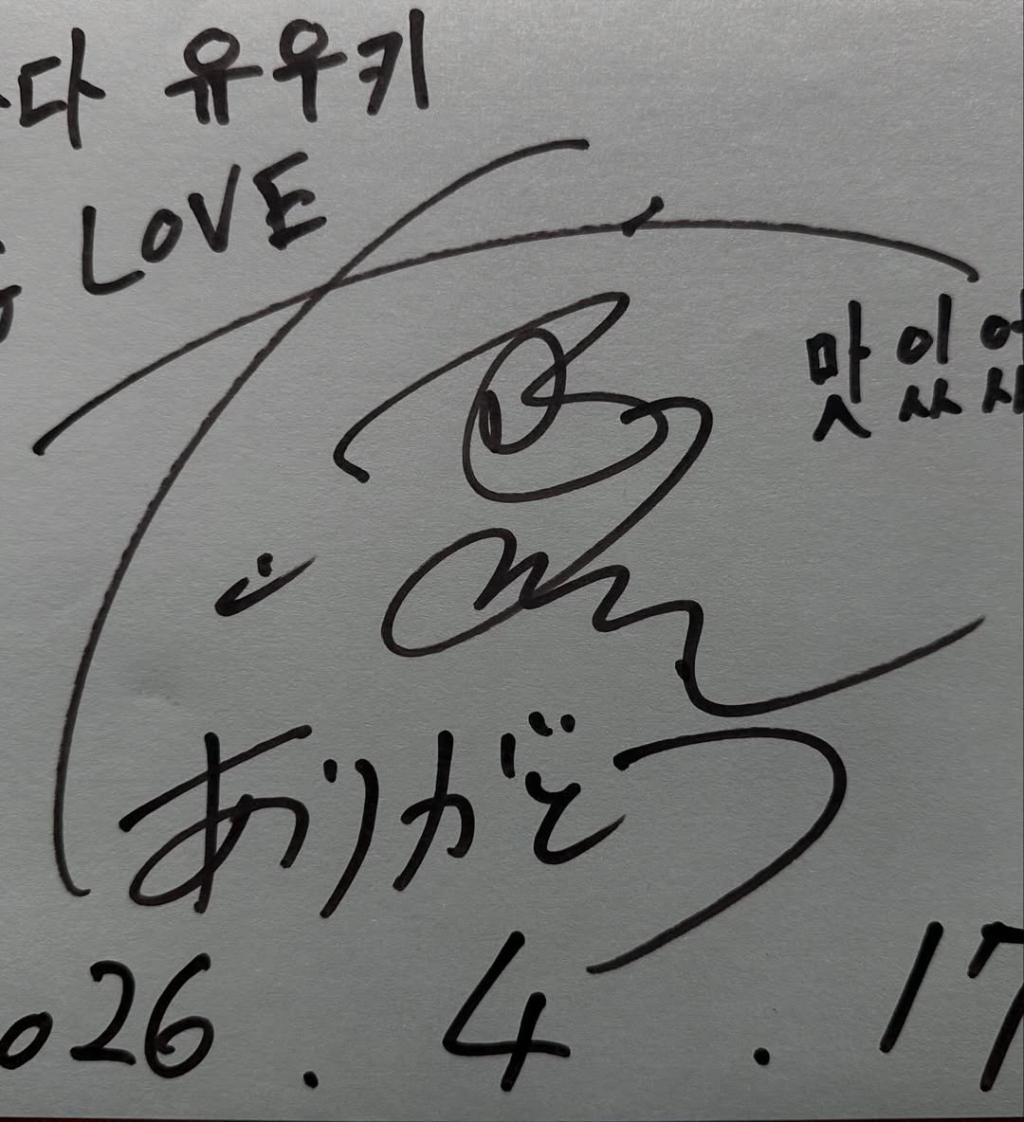 다 유우키
LOVE
맛있어
ありがとう
2026. 4. 17